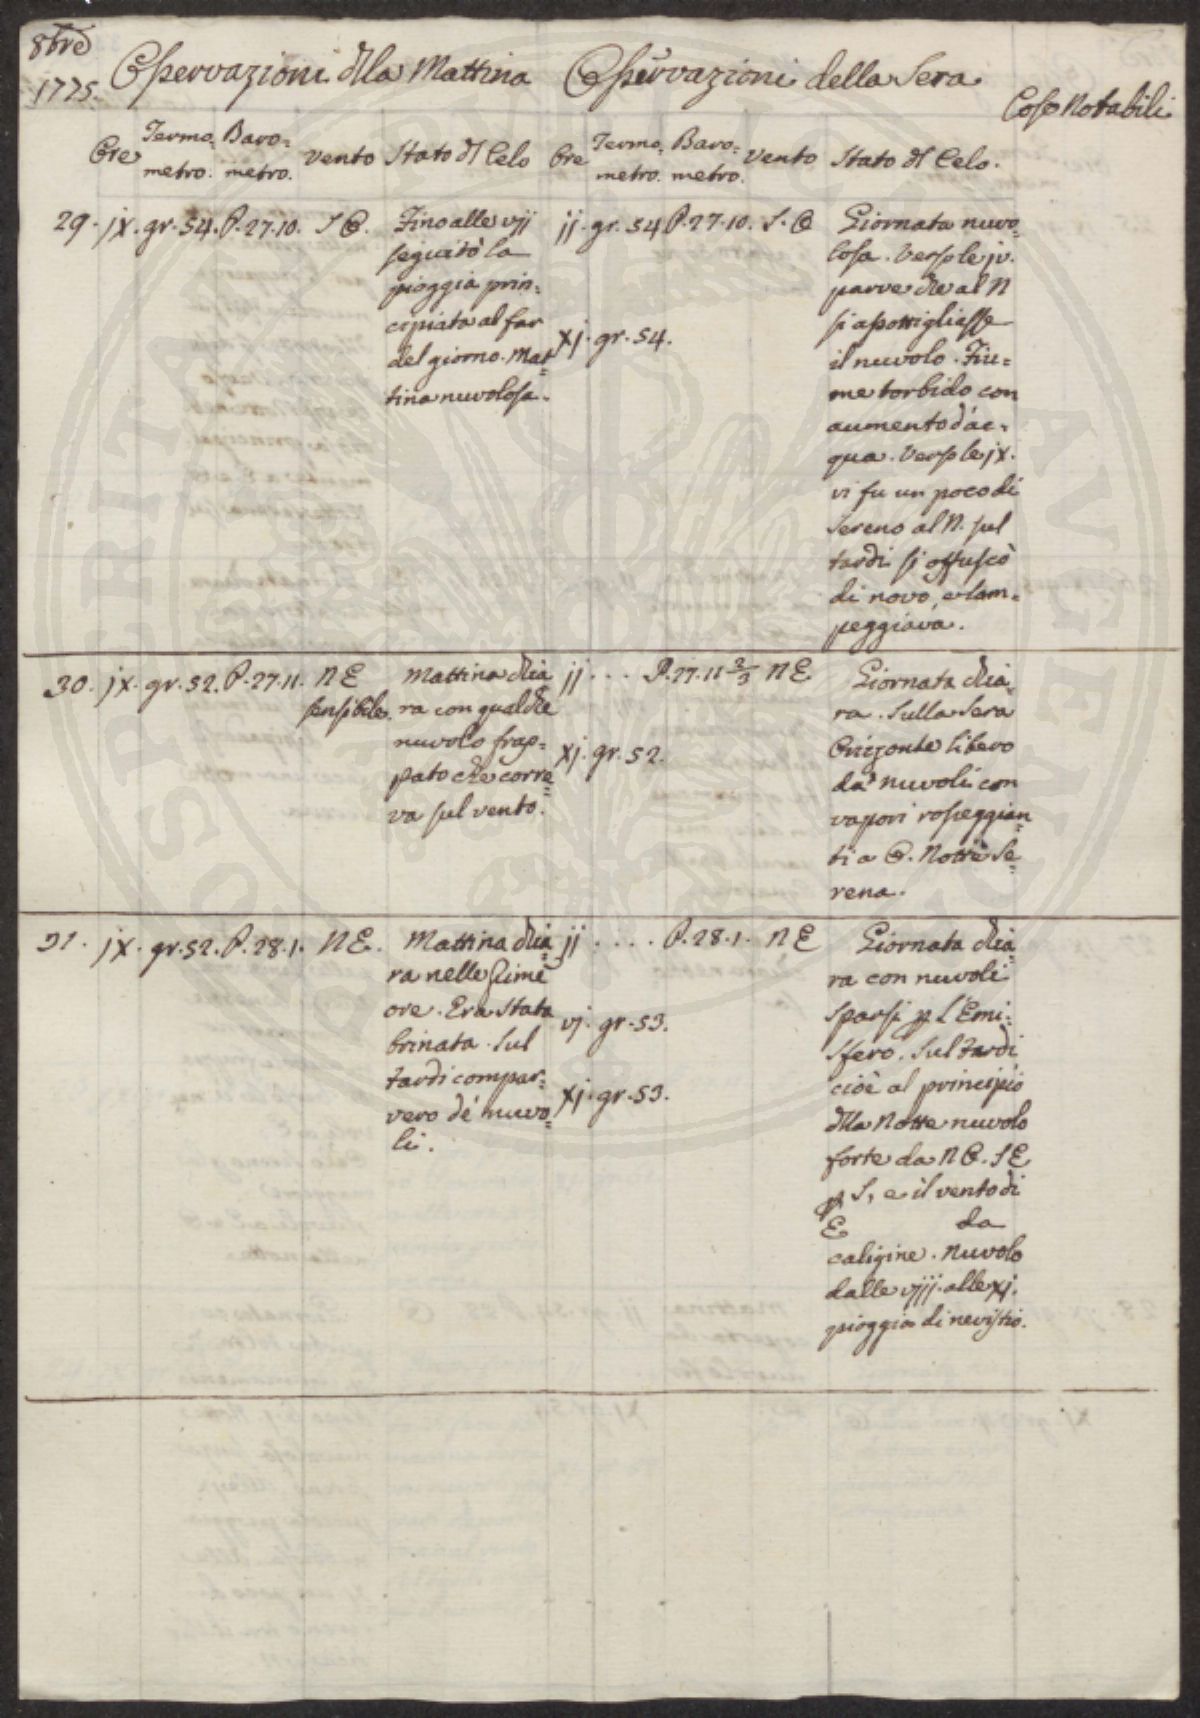 8bre
1775.
Osservazioni dlla Mattina
Osservazioni della Sera
Cose Notabili
Ore
Termo=
metro.
Baro=
metro.
Vento
Stato dl Celo
Ore
Termo=
metro.
Baro=
metro.
Vento
Stato dl Celo.
29. jx. gr. 54. P. 27.10. S O.
Fino alle vjj
seguitò la
pioggia prin=
cipiata al far
del giorno. Mat=
tina nuvolosa.
jj. gr. 54 P. 27.10. S. O
xj. gr. 54.
Giornata nuvo=
losa. Verso le jv.
parve che al N
si assottigliasse
il nuvolo. Fiu=
me torbido con
aumento d'ac=
qua. Verso le jx.
vi fu un poco di
sereno al N. sul
tardi si offuscò
di novo, e lam=
peggiava.
30. jx. gr. 52. P. 27.11. N E
sensibile.
Mattina chia=
ra con qualche
nuvolo frap=
pato che corre=
va sul vento.
jj . . . P. 27.11 2/3 N E
xj. gr. 52.
Giornata chia=
ra. Sulla Sera
Orizonte libero
da' nuvoli con
vapori rosseggian=
ti a O. Notte Se=
rena.
31. jx. gr. 52. P. 28.1. N E.
Mattina chia=
ra nelle prime
ore. Era stata
brinata. Sul
tardi compar=
vero de' nuvo=
li.
jj . . . . P. 28.1. N E
vj. gr. 53.
xj. gr. 53.
Giornata chia=
ra con nuvoli
sparsi p l'Emi=
sfero. Sul tardi
cioè al principio
dlla Notte nuvolo
forte da N O. S E
p S, e il vento di
E da
caligine. Nuvolo
dalle vjjj. alle xj.
pioggia di nevistio.